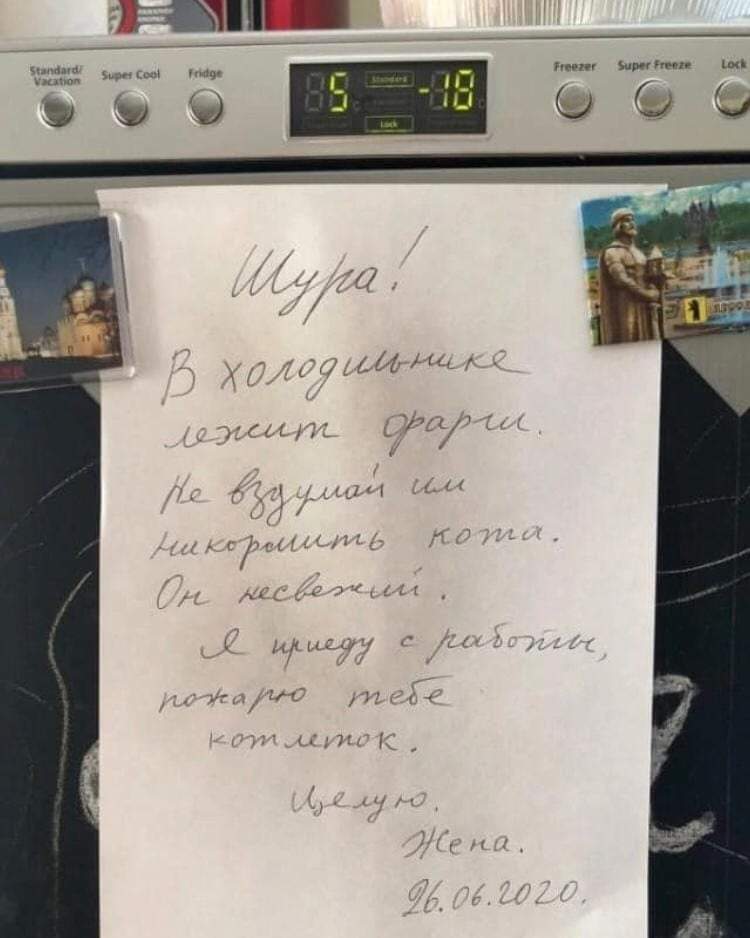 Standard/ Super Cool Fridge Freezer Super Freeze Lock
Vacation
5 Standard -18
Lock
Шура!
В холодильнике
лежит фарш.
Не вздумай им
накормить кота.
Он несвежий.
Я приеду с работы,
пожарю тебе
котлеток.
Целую.
Жена.
26.06.2020.